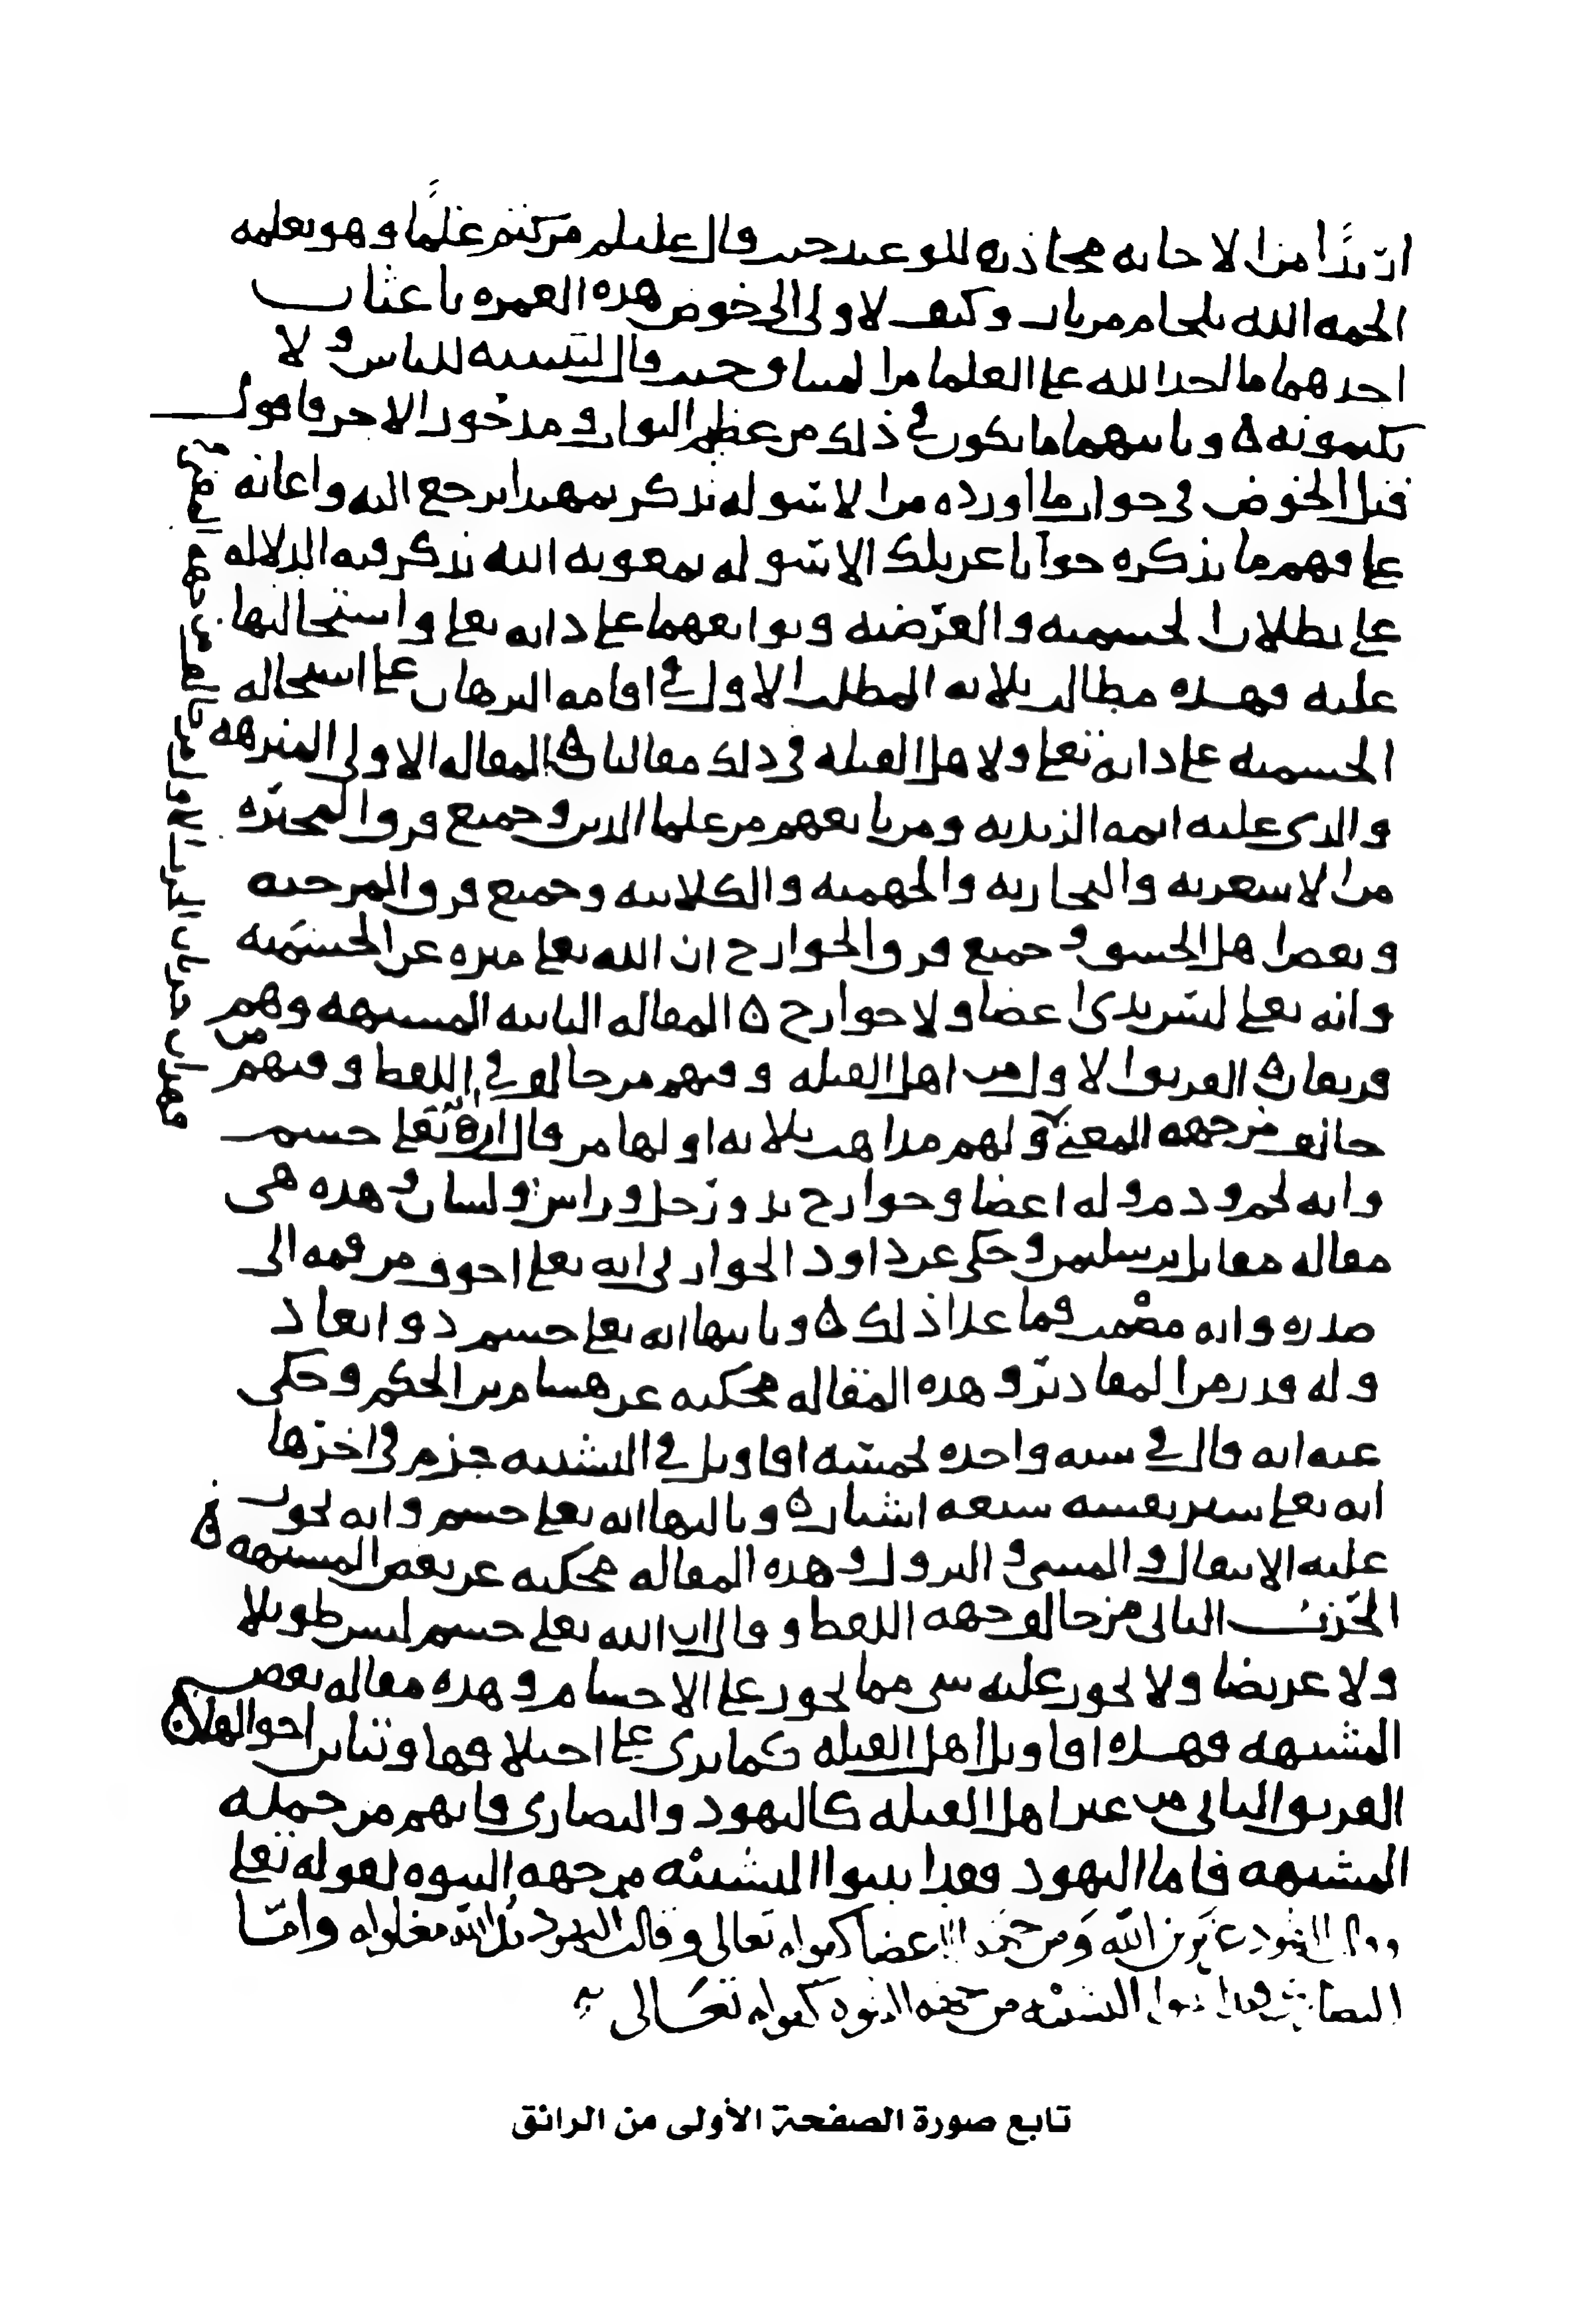 ار بدًا من الاجابه محاذره للوعيد حيث قال عليلم من كتم علمًا وهو يعلمه
الجمه الله بلجام من نار وكيف لا ولى الى خوض هذه الغمره باعثان
احدهما ما اخذ الله على العلما من الميثاق حيث قال لتبيننه للناس ولا
تكتمونه ۞ وثانيهما ما يكون في ذلك من عظيم الثواب ومذخور الاجر فاقول
قبل الخوض في جواب ما اورده من الاسوله نذكر تمهيدا يرجع اليه واعانه
على فهم ما نذكره جوابا عن تلك الاسوله بمعونه الله نذكر فيه الدلاله
على بطلان الجسميه والعرضيه وتوابعهما على ذاته تعلى واستحالتها
عليه فهذه مطالب ثلاثه المطلب الاول في اقامه البرهان على استحاله
الجسميه على ذاته تعلى ولاهل القبله في ذلك مقالتان ۞ المقاله الاولى المنزهه
والذي عليه ايمه الزيديه ومن تابعهم من علما الدين وجميع فرق المجبره
من الاشعريه والنجاريه والجهميه والكلابيه وجميع فرق المرجيه
وبعض اهل الحشو وجميع فرق الخوارج ان الله تعلى منزه عن الجسميه
وانه تعلى ليس بذي اعضا ولا جوارح ۞ المقاله الثانيه المشبهه وهم
فريقان ۞ الفريق الاول من اهل القبله وفيهم من خالف في اللفظ وفيهم من
خالف من جهه المعنى ولهم مذاهب ثلاثه اولها من قال انه تعلى جسم
وانه لحم ودم وله اعضا وجوارح يد ورجل وراس ولسان وهذه هي
مقاله مقاتل بن سليمن وحكى عن داود الجواربي انه تعلى اجوف من فمه الى
صدره وانه مصمت فما عدا ذلك ۞ وثانيها انه تعلى جسم ذو ابعاد
وله قدر من المقادير وهذه المقاله محكيه عن هشام بن الحكم وحكى
عنه انه قال في سنه واحده خمسه اقاويل في التشبيه جزم في اخرها
انه تعلى بشبر نفسه سبعه اشبار ۞ وثالثها انه تعلى جسم وانه يجوز
عليه الانتقال والمشي والنزول وهذه المقاله محكيه عن بعض المشبهه ۞
الحزب الثاني من خالف جهه اللفظ وقال ان الله تعلى جسم ليس طويلا
ولا عريضا ولا يجوز عليه شي مما يجوز على الاجسام وهذه مقاله بعض
المشبهه فهذه اقاويل اهل القبله كما يرى على اختلافها وتباين احوالها ۞
الفريق الثاني من غير اهل القبله كاليهود والنصارى فانهم من جمله
المشبهه فاما اليهود فقد اثبتوا التشبيه من جهه البنوه لقوله تعلى
وقالت اليهود عزير ابن الله ومن جهه الاعضا كقوله تعالى وقالت اليهود يد الله مغلوله واما
النصارى فقد اثبتوا التشبيه من جهه البنوه كقوله تعالى
تابع صورة الصفحة الأولى من الرائق